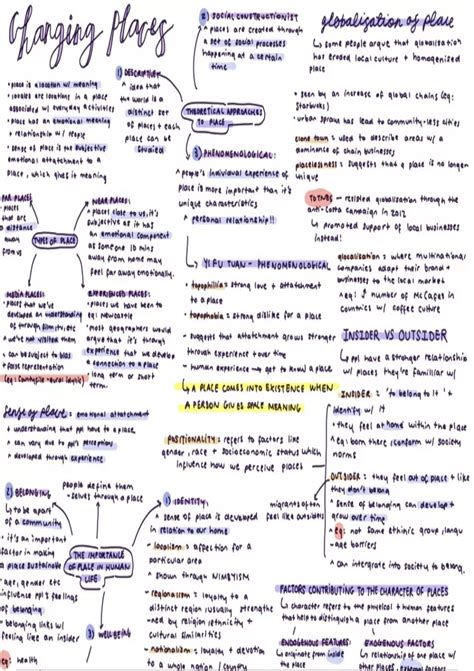 Changing Places
• place is a location w/ meaning
• locales are locations in a place
associated w/ everyday activities
• place has an emotional meaning
+ relationship w/ people
• sense of place is the subjective
emotional attachment to a
place, which gives it meaning
1) DESCRIPTIVE:
↳ idea that
the world is a
distinct set
of places + each
place can be
studied
2) SOCIAL CONSTRUCTIONIST
↳ places are created through
a set of social processes
happening at a certain
time
THEORETICAL APPROACHES
TO PLACE
3) PHENOMENOLOGICAL:
↳ people's individual experience of
place is more important than it's
unique characteristics
↳ personal relationship!!
FAR PLACES:
• places
that are
a distance
away
from us
NEAR PLACES:
• places close to us. it's
subjective as it has
an emotional component
as someone 10 mins
away from home may
feel far away emotionally.
TYPES OF PLACE
MEDIA PLACES:
• places that we've
developed an understanding
of through film, tv, etc
• we've not visited them
• can be subject to bias
+ false representation
EXPERIENCED PLACES:
• places we have been to
eg: newcastle
• most geographers would
argue that it's through
experience that we develop
a connection to a place
long term or short
term.
↳ YI FU TUAN - PHENOMENOLOGICAL
• topophilia: strong love + attachment
to a place
• topophobia: strong dislike for a place
• suggests that attachment grows stronger
through experience + over time
• human experience → get to know a place
↳ A PLACE COMES INTO EXISTENCE WHEN
A PERSON GIVES SPACE MEANING
POSITIONALITY: refers to factors like
gender, race + socioeconomic status which
influence how we perceive places
Sense of Place: emotional attachment
+ understanding that ppl have to a place
↳ can vary due to ppl's perceptions
↳ developed through experience
people define them
selves through a place
2) BELONGING
↳ to be apart
of a community
• it's an important
factor in making
a place sustainable
• age, gender etc
influence ppl's feelings
of belonging
• belonging links w/
feeling like an insider
eg: health
THE IMPORTANCE
OF PLACE IN HUMAN
LIFE
3) WELLBEING
1) IDENTITY:
↳ sense of place is developed
in relation to our home
• localism: affection for a
particular area
↳ shown through NIMBYISM
• regionalism: loyalty to a
distinct region usually strengthe
-ned by religion, ethnicity +
cultural similarities
• nationalism: loyalty + devotion
to a whole nation / country
globalization of place
↳ some people argue that globalisation
has eroded local culture + homogenized
place
• seen by an increase of global chains (eg:
Starbucks)
• urban sprawl has lead to community-less cities
clone town: used to describe areas w/ a
dominance of chain businesses
placelessness: suggests that a place is no longer
unique
TOTNES - resisted globalisation through the
anti-Costa campaign in 2012
↳ promoted support of local businesses
instead!
glocalisation: where multinational
companies adapt their brand +
businesses to the local market
↳ eg: ↑ number of McCafes in
countries w/ coffee culture
INSIDER VS OUTSIDER
↳ ppl have a stronger relationship
w/ places they're familiar w/
INSIDER: 'to belong to it' +
identify w/ it
• they feel at home within the place
↳ eg: born there, conform w/ society
norms
migrants often
feel like outsiders
OUTSIDER: they feel out of place + like
they don't belong
↳ sense of belonging can develop +
grow over time
↳ eg: not same ethnic group, langu
-age barriers
↳ can intergrate into society to belong.
FACTORS CONTRIBUTING TO THE CHARACTER OF PLACES
↳ character refers to the physical + human features
that help to distinguish a place from another place
ENDOGENOUS FEATURES:
• originate from
EXOGENOUS FACTORS
• relationship of one place w/
other places